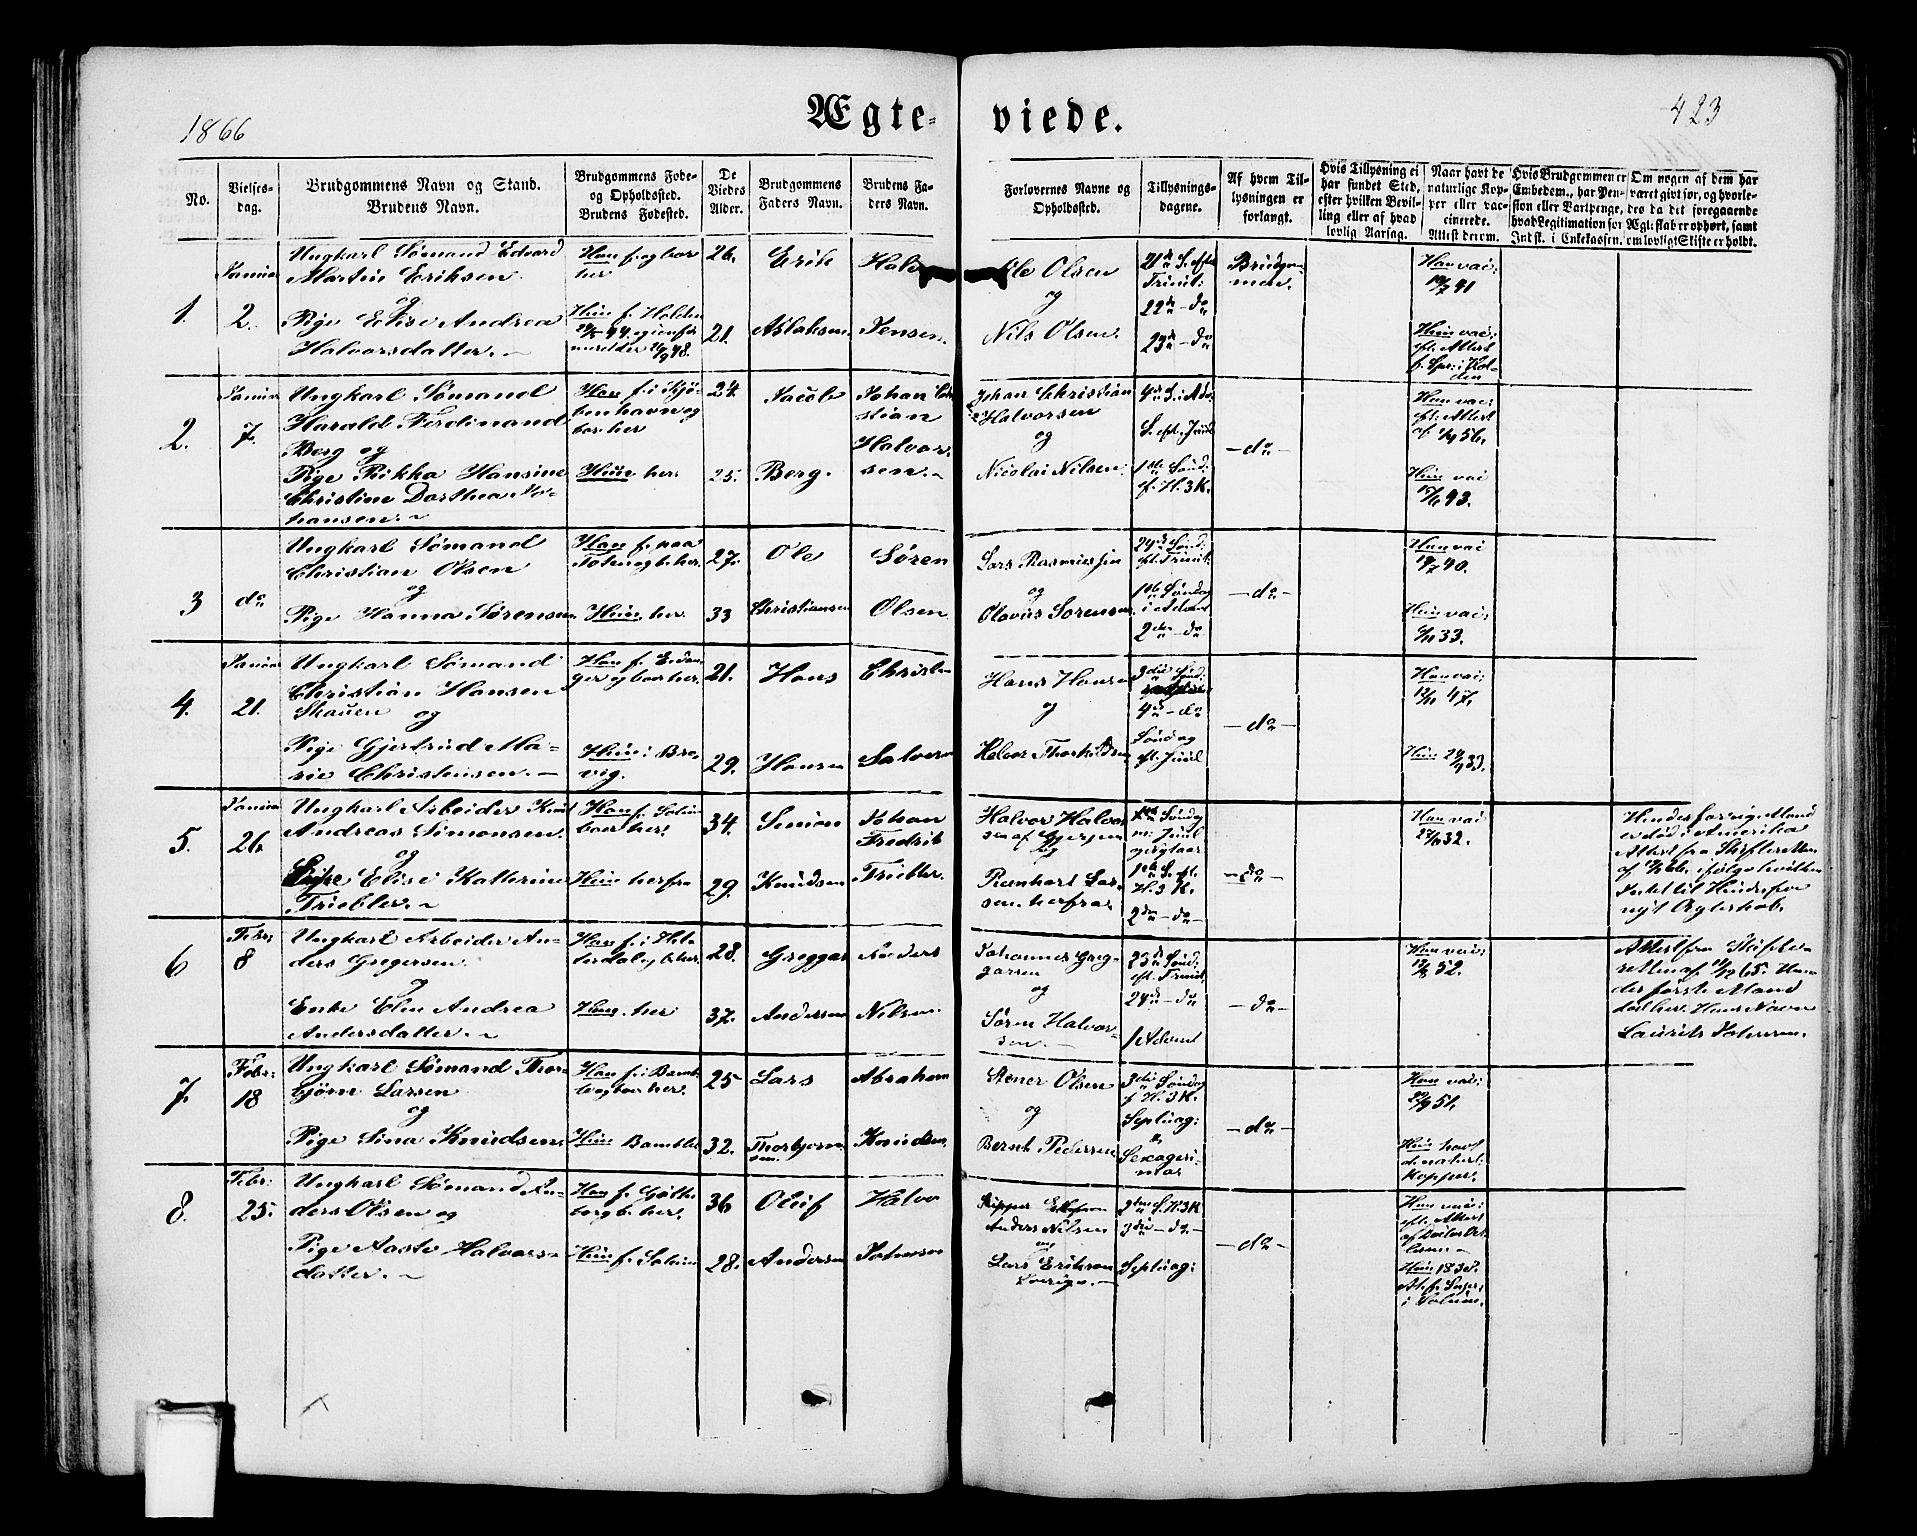 1866
Ægte-
viede.
423
No.
Vielses-
dag.
Brudgommens Navn og Stand.
Brudens Navn.
Brudgommens Føde-
og Opholdssted.
Brudens Fødested.
De
Viedes
Alder.
Brudgommens
Faders Navn.
Brudens Fa-
ders Navn.
Forlovernes Navne og
Opholdssted.
Tillysnings-
dagene.
Af hvem Til-
lysningen er
forlangt.
Hvis Tillysning ei
har fundet Sted,
efter hvilken Bevil-
ling eller af hvad
lovlig Aarsag.
Naar havt de
naturlige Kop-
per eller vac-
cinerede.
Attest derom.
Hvis Brudgommen er
Embedsm., har Pen-
sion eller Vartpenge,
hvad Legitimation for
Indsk. i Enkekassen.
Om nogen af dem har
været gift før, og hvorle-
des da det foregaaende
Ægteskab er ophørt, samt
om lovligt Skifte er holdt.
1.
2.
Ungkarl Sømand Edvard
Martin Eriksen
og
Pige Elise Andrea
Halvorsdatter.
Han f. og bor
her
Hun f. Holden
26.
21.
Erik
Aslaksen
Halvor
Jensen.
Ole Olsen
og
Nils Olsen.
21de S. eft.
Trinit:
22de – do
23de – do
Brudgom-
men.
Han vac:
Hun vac:
eft. Attest
2.
7.
Ungkarl Sømand
Harald Ferdinand
Berg og
Pige Rikka Hansine
Christine Dorthea Jo-
hansen.
Han f. i Kjø-
benhavn og
bor her
Hun her.
24.
25.
Jacob
Berg.
Johan Chri-
stian
Halvor-
sen.
Johan Christian
Halvorsen
og
Nicolai Nilsen.
4de S. i Adv.
S. eft. Juul
1ste Sønd.
f. H. 3 K.
– do –
Han vac:
eft. Attest
Hun vac
3
do
Ungkarl Sømand
Christian Olsen
og
Pige Hanna Sørensen
Han f. paa
Toten og b. her.
Hun her.
27.
33
Ole
Christiansen
Søren
Olsen
Lars Rasmussen
og
Olavus Sørensen
24de Sønd:
eft. Trinit.
1ste Søndag
i Advent
2den – do
– do –
Han vac
Hun vac:
4.
21.
Ungkarl Sømand
Christian Hansen
Skauen og
Pige Gjertrud Ma-
rie Christensen.
Han f. Eidan-
ger og bor her.
Hun i Bre-
vig.
21.
29.
Hans
Hansen
Christen
Halvorsen
Hans Hansen
og
3die Sønd.
4de – do
Søndag
eft. Juul
– do –
Han vac:
Hun
5.
26.
Ungkarl Arbeider Knut
Andreas Simonsen.
og
Elise Kathrine
Triebler.
Han f. Solum
bor her.
Hun herfra
34.
29.
Simon
Knudsen
Johan
Fredrik
Triebler.
Halvor Halvor-
og
Reinhart Lar-
sen herfra.
1ste S. eft.
H. 3 K.
2den – do
– do –
Han vac
Hendes forrige Mand
er død i Amerika
Attest fra Skifteretten
nyt Ægteskab.
6
Febr:
8
Ungkarl Arbeider An-
ders Gregersen
og
Enke Elen Andrea
Andersdatter.
Han f. i Hit-
terdal og b. her.
Hun her
28.
37.
Greggar
Andersen
Anders
Nilsen
Johannes Greg-
garsen
og
Søren Halvor-
sen.
23de Sønd.
eft. Trinit.
24de – do
1 Advent
– do –
Han vac:
Attest fra Skifte-
retten af
des første Mand
Laurits
7.
Febr:
18
Ungkarl Sømand Thor-
bjørn Larsen
og
Pige Sina Knudsen
Han f. i Bamb-
le og bor her.
Hun Bamble
25
32.
Lars
Thorbjørn-
sen.
Abraham
Knudsen
Stener Olsen
og
Bernt Pedersen
3die Søndag
f. H. 3 K.
Septuag:
Sexagesi-
mae
– do –
Han vac:
Hun havt
de naturl.
Kopper.
8.
Febr:
25.
Ungkarl Sømand An-
ders Olsen og
Pige Aaste Halvors-
datter.
Han f. Gøthe-
borg b. her.
Hun f. Solum
36
28.
Oluf
Andersen
Halvor
Skipper
Anders Nilsen
og
Lars Eriksen
2den S. H. 3 K
3die – do –
Septuag:
– do –
Han vac:
eft. Attest
Hun 1838.
i Solum.